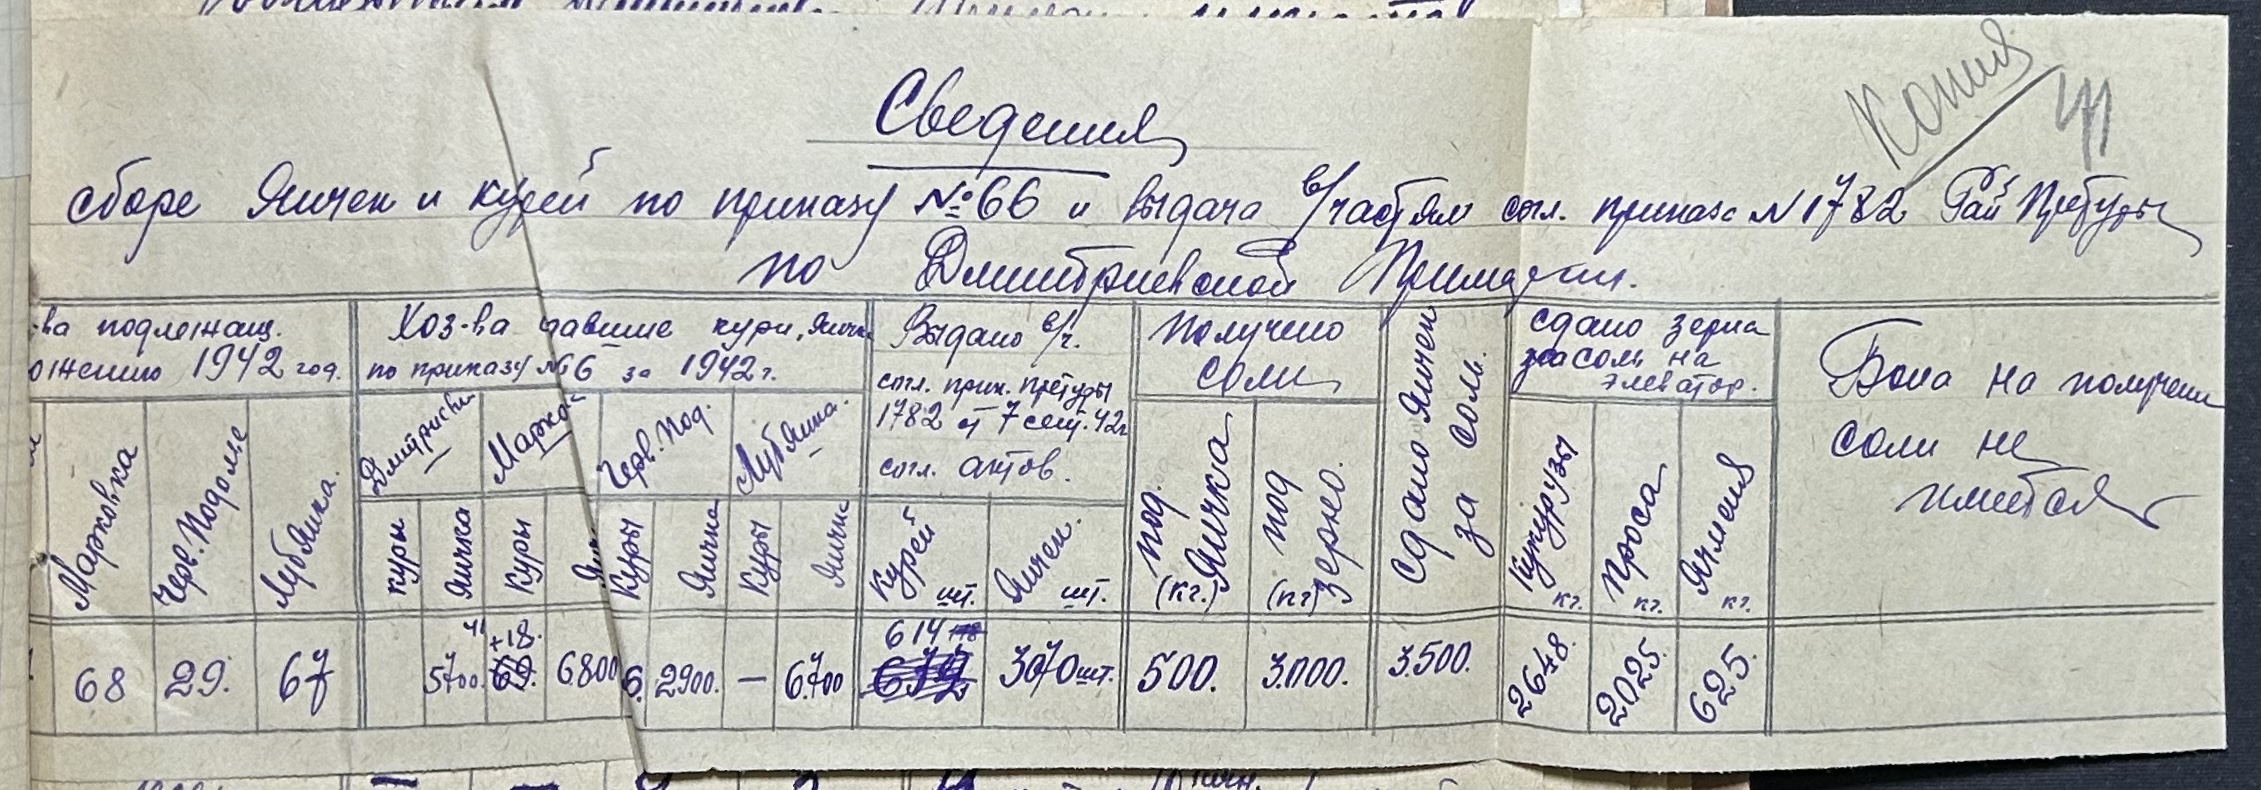 Копия
Сведения
сборе Яичек и курей по приказу № 66 и выдача в/частям согл. приказа N 1782 Рай Претуры
по Дмитриевской Примарии.
-ва подлежащ.
ожению 1942 год.
Марковка
Черв. Подолье
Лубянка.
Хоз-ва давшие куры, яички
по приказу № 66 за 1942 г.
Дмитриевка
Марков
Черв. Под.
Лубянка.
куры
Яичка
Куры
Яич
Куры
Яичка
Куры
Яички
Выдано в/ч.
согл. прик. претуры
1782 от 7 сент. 42г
согл. актов.
Курей шт.
Яичек шт.
Получено
соли
под Яичка (кг.)
под зерно. (кг)
Сдано Яичек за соль.
сдано зерна
за соль на
элеватор.
Кукурузы кг.
Проса кг.
Ячменя кг.
Бона на получени
соли не
имеется
68
29.
67
41
5700.
+18.
69.
6800
6.
2900.
—
6.700
614
3070 шт.
500.
3.000.
3.500.
2648.
2025.
625.